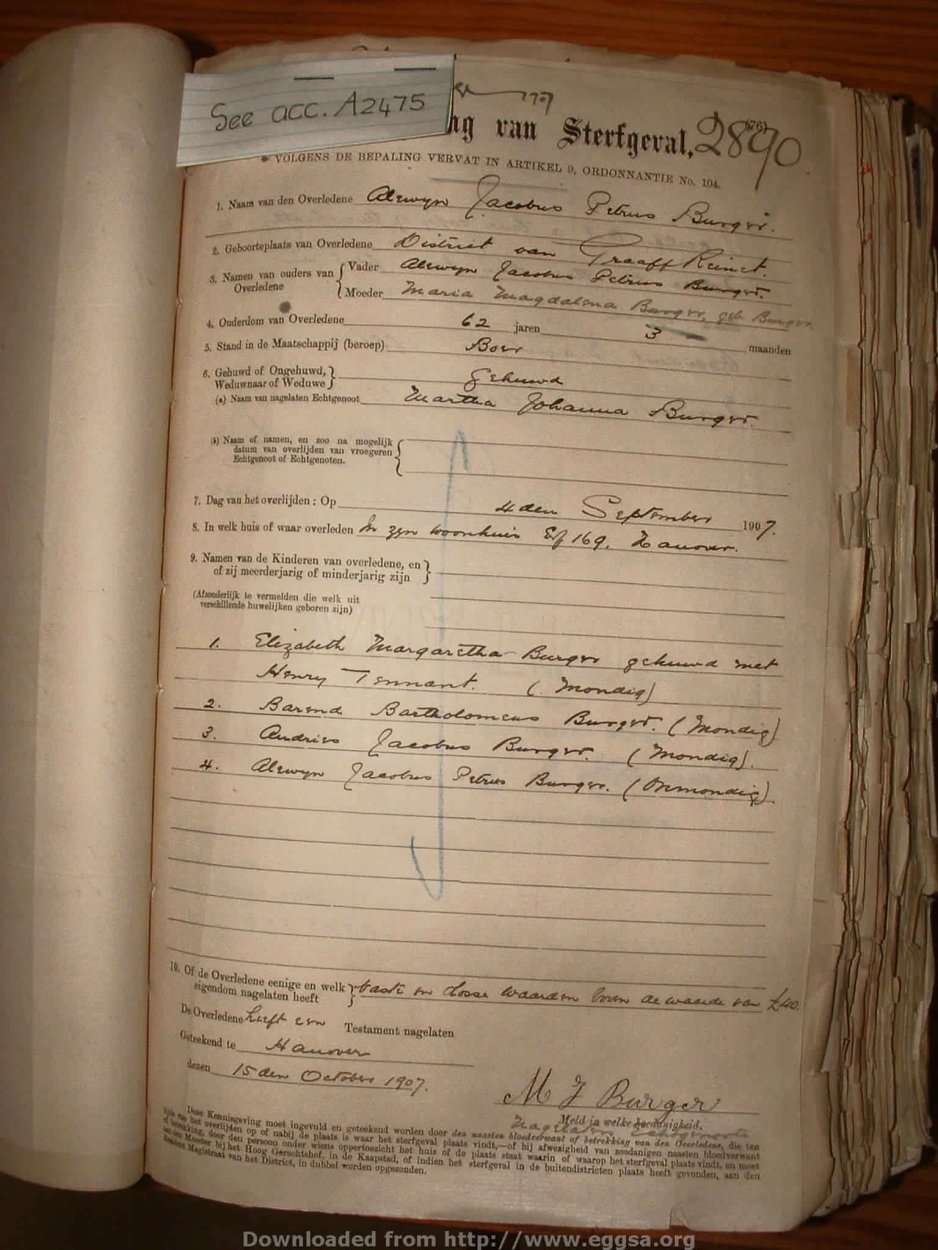 See acc. A2475
van Sterfgeval, 2890
(76)
VOLGENS DE BEPALING VERVAT IN ARTIKEL 9, ORDONNANTIE No. 104.
1. Naam van den Overledene Alewyn Jacobus Petrus Burger.
2. Geboorteplaats van Overledene District van Graaff Reinet.
3. Namen van ouders van Overledene { Vader Alewyn Jacobus Petrus Burger.
{ Moeder Maria Magdalena Burger, geb Burger
4. Ouderdom van Overledene 62 jaren 3 maanden
5. Stand in de Maatschappij (beroep) Boer
6. Gehuwd of Ongehuwd, Weduwnaar of Weduwe } Gehuwd
(a) Naam van nagelaten Echtgenoot Martha Johanna Burger.
(b) Naam of namen, en zoo na mogelijk
datum van overlijden van vroegeren
Echtgenoot of Echtgenoten.
7. Dag van het overlijden : Op 4den September 1907.
8. In welk huis of waar overleden In zyn woonhuis Erf 169, Hanover.
9. Namen van de Kinderen van overledene, en
of zij meerderjarig of minderjarig zijn
(Afzonderlijk te vermelden die welk uit
verschillende huwelijken geboren zijn)
1. Elizabeth Margaretha Burger gehuwd met
Henry Tennant. (Mondig)
2. Barend Bartholomeus Burger. (Mondig)
3. Andries Jacobus Burger. (Mondig).
4. Alewyn Jacobus Petrus Burger. (Onmondig)
10. Of de Overledene eenige en welk
eigendom nagelaten heeft } Vaste en losse waarden boven de waarde van £40.
De Overledene heeft een Testament nagelaten
Geteekend te Hanover
dezen 15den October 1907.
M J Burger
Meld in welke hoedanigheid.
Nagelaten echtgenoote
Deze Kennisgeving moet ingevuld en geteekend worden door den naasten bloedverwant of betrekking van den Overledene, die ten
tijde van het overlijden op of nabij de plaats is waar het sterfgeval plaats vindt,—of bij afwezigheid van zoodanigen naasten bloedverwant
of betrekking, door den persoon onder wiens oppertoezicht het huis of de plaats staat waarin of waarop het sterfgeval plaats vindt, en moet
aan den Meester bij het Hoog Gerechtshof, in de Kaapstad, of indien het sterfgeval in de buitendistricten plaats heeft gevonden, aan den
Magistraat van het District, in dubbel worden opgezonden.
Downloaded from http://www.eggsa.org